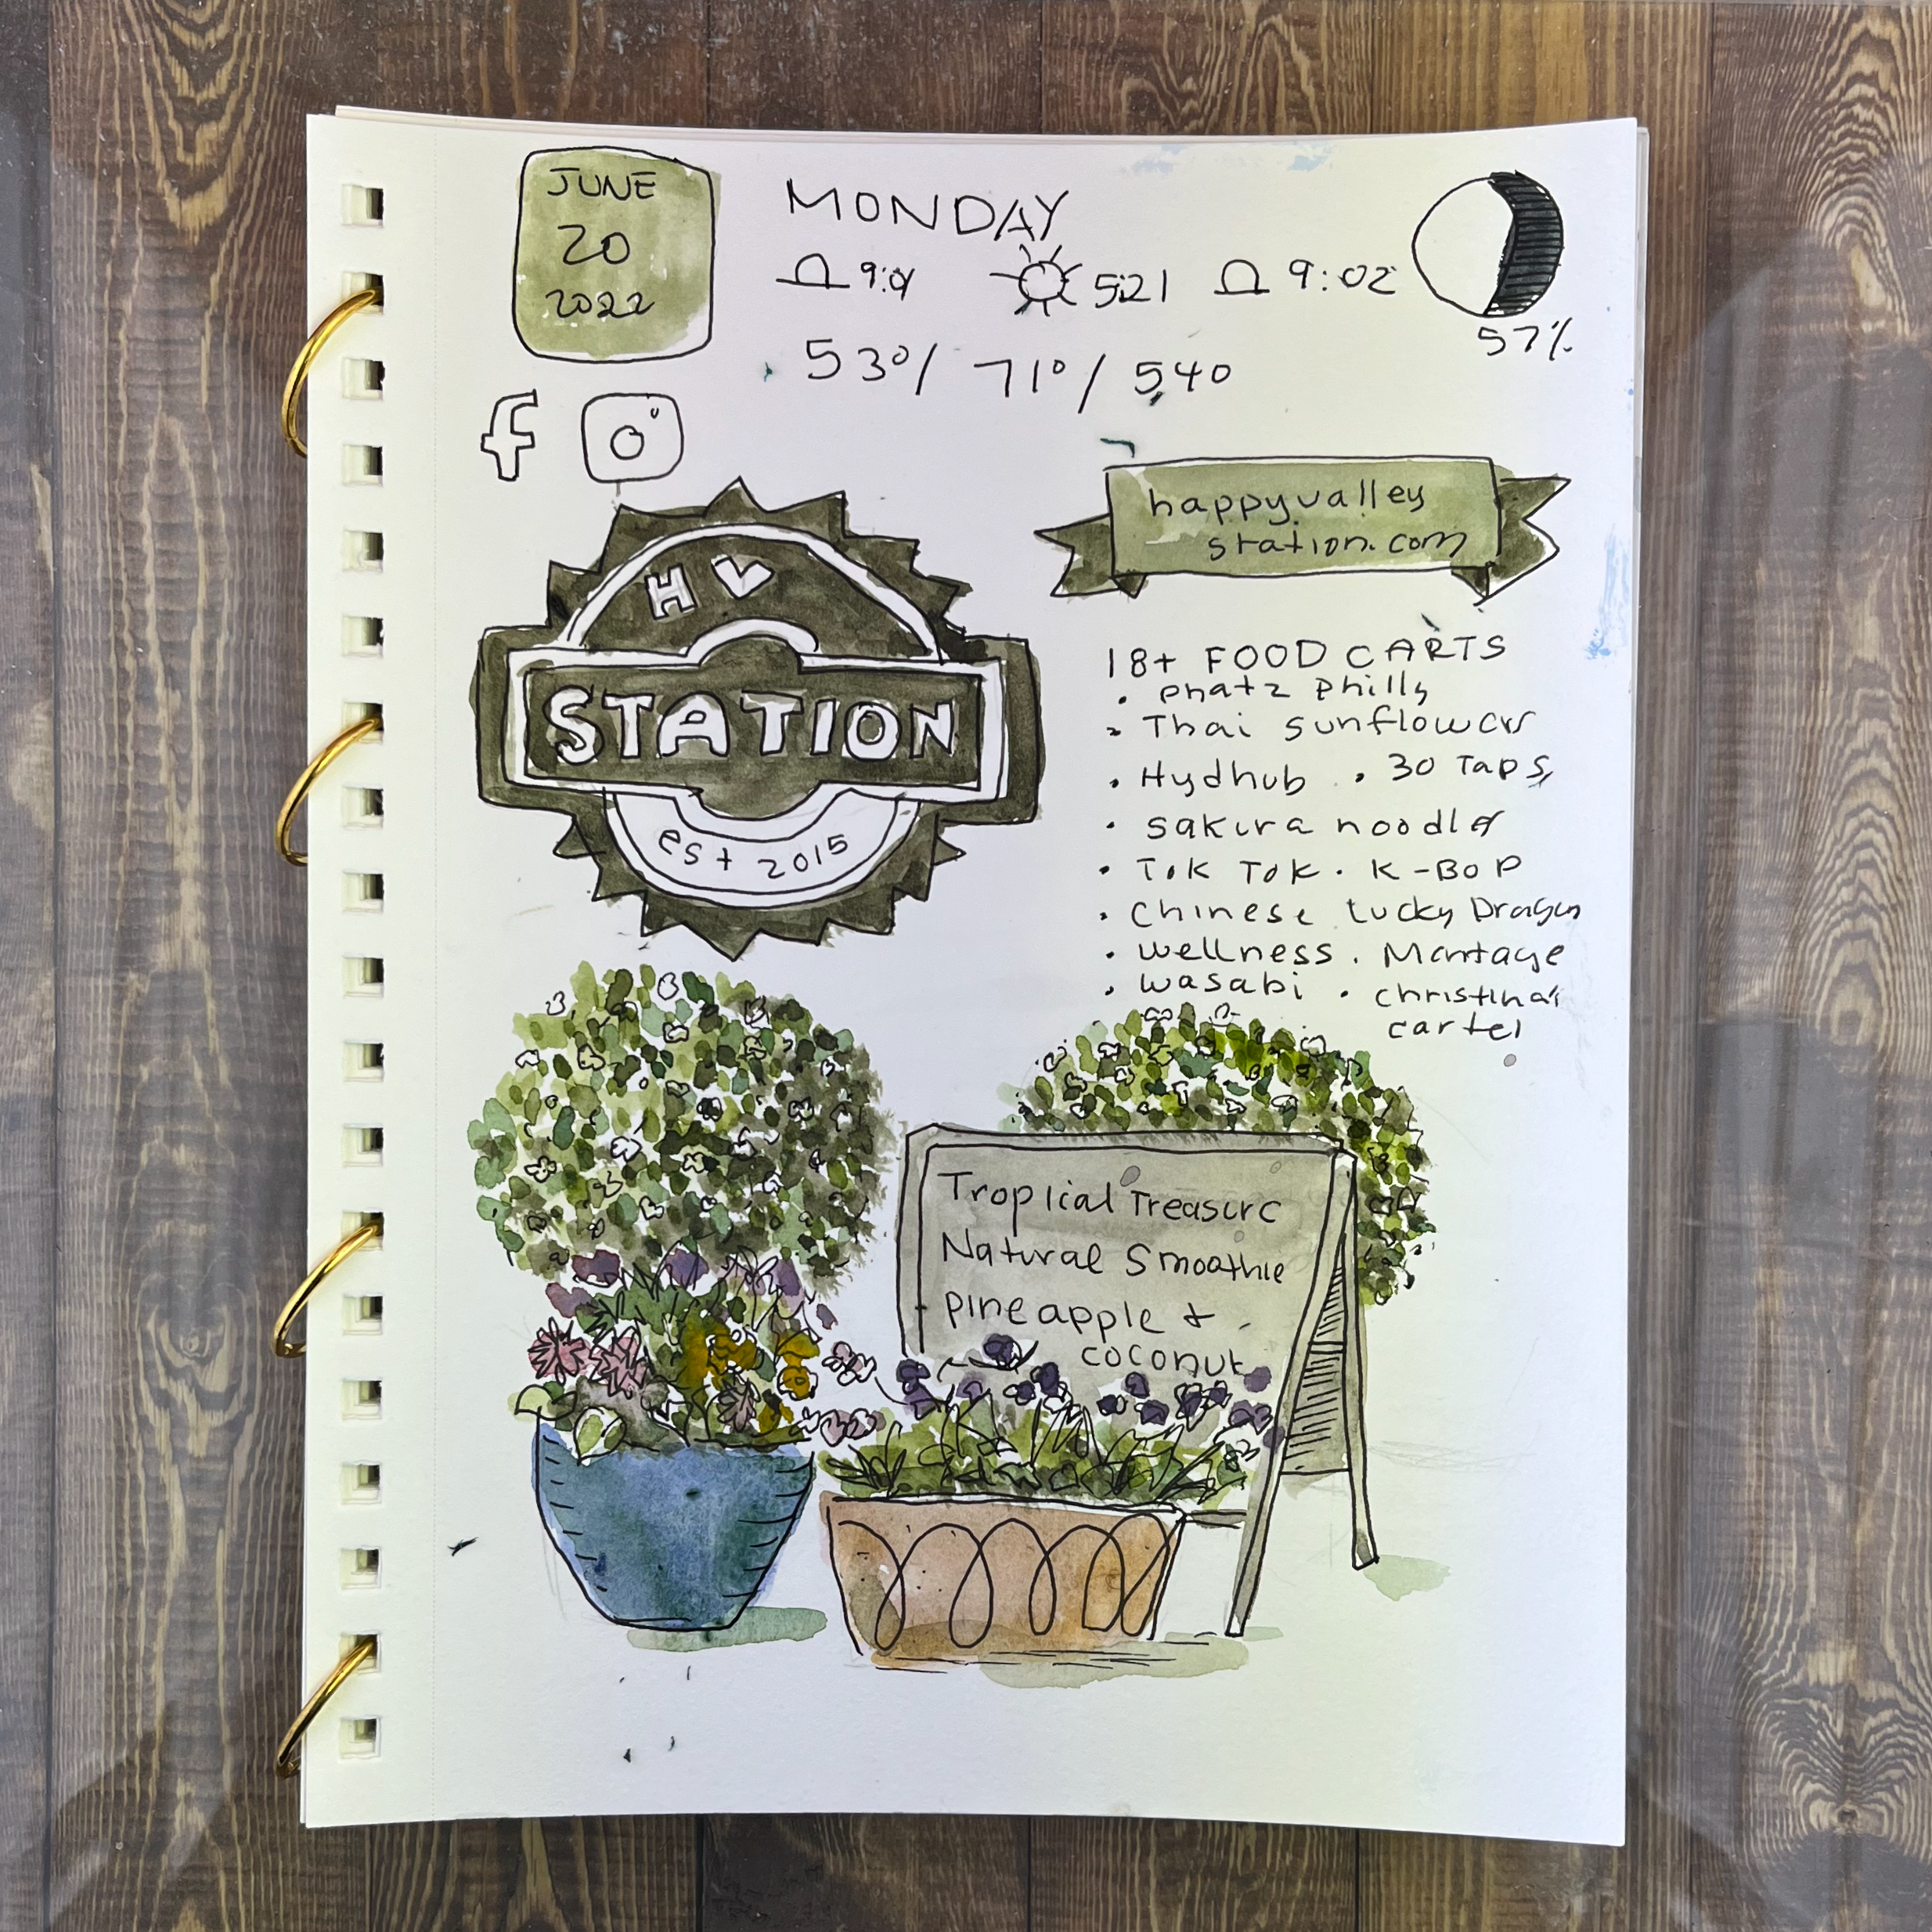 JUNE
20
2022
MONDAY
5:21 9:02
57%
53°/ 71°/ 54°
f
happyvalley
station.com
HV
STATION
est 2015
18+ FOOD CARTS
• phatz philly
• Thai sunflowers
• Hydhub • 30 Taps
• sakura noodles
• TOK TOK • K-BOP
• Chinese Lucky Dragon
• wellness • Montage
• wasabi • christina's
cartel
Troplical Treasure
Natural Smoothie
pineapple +
coconut